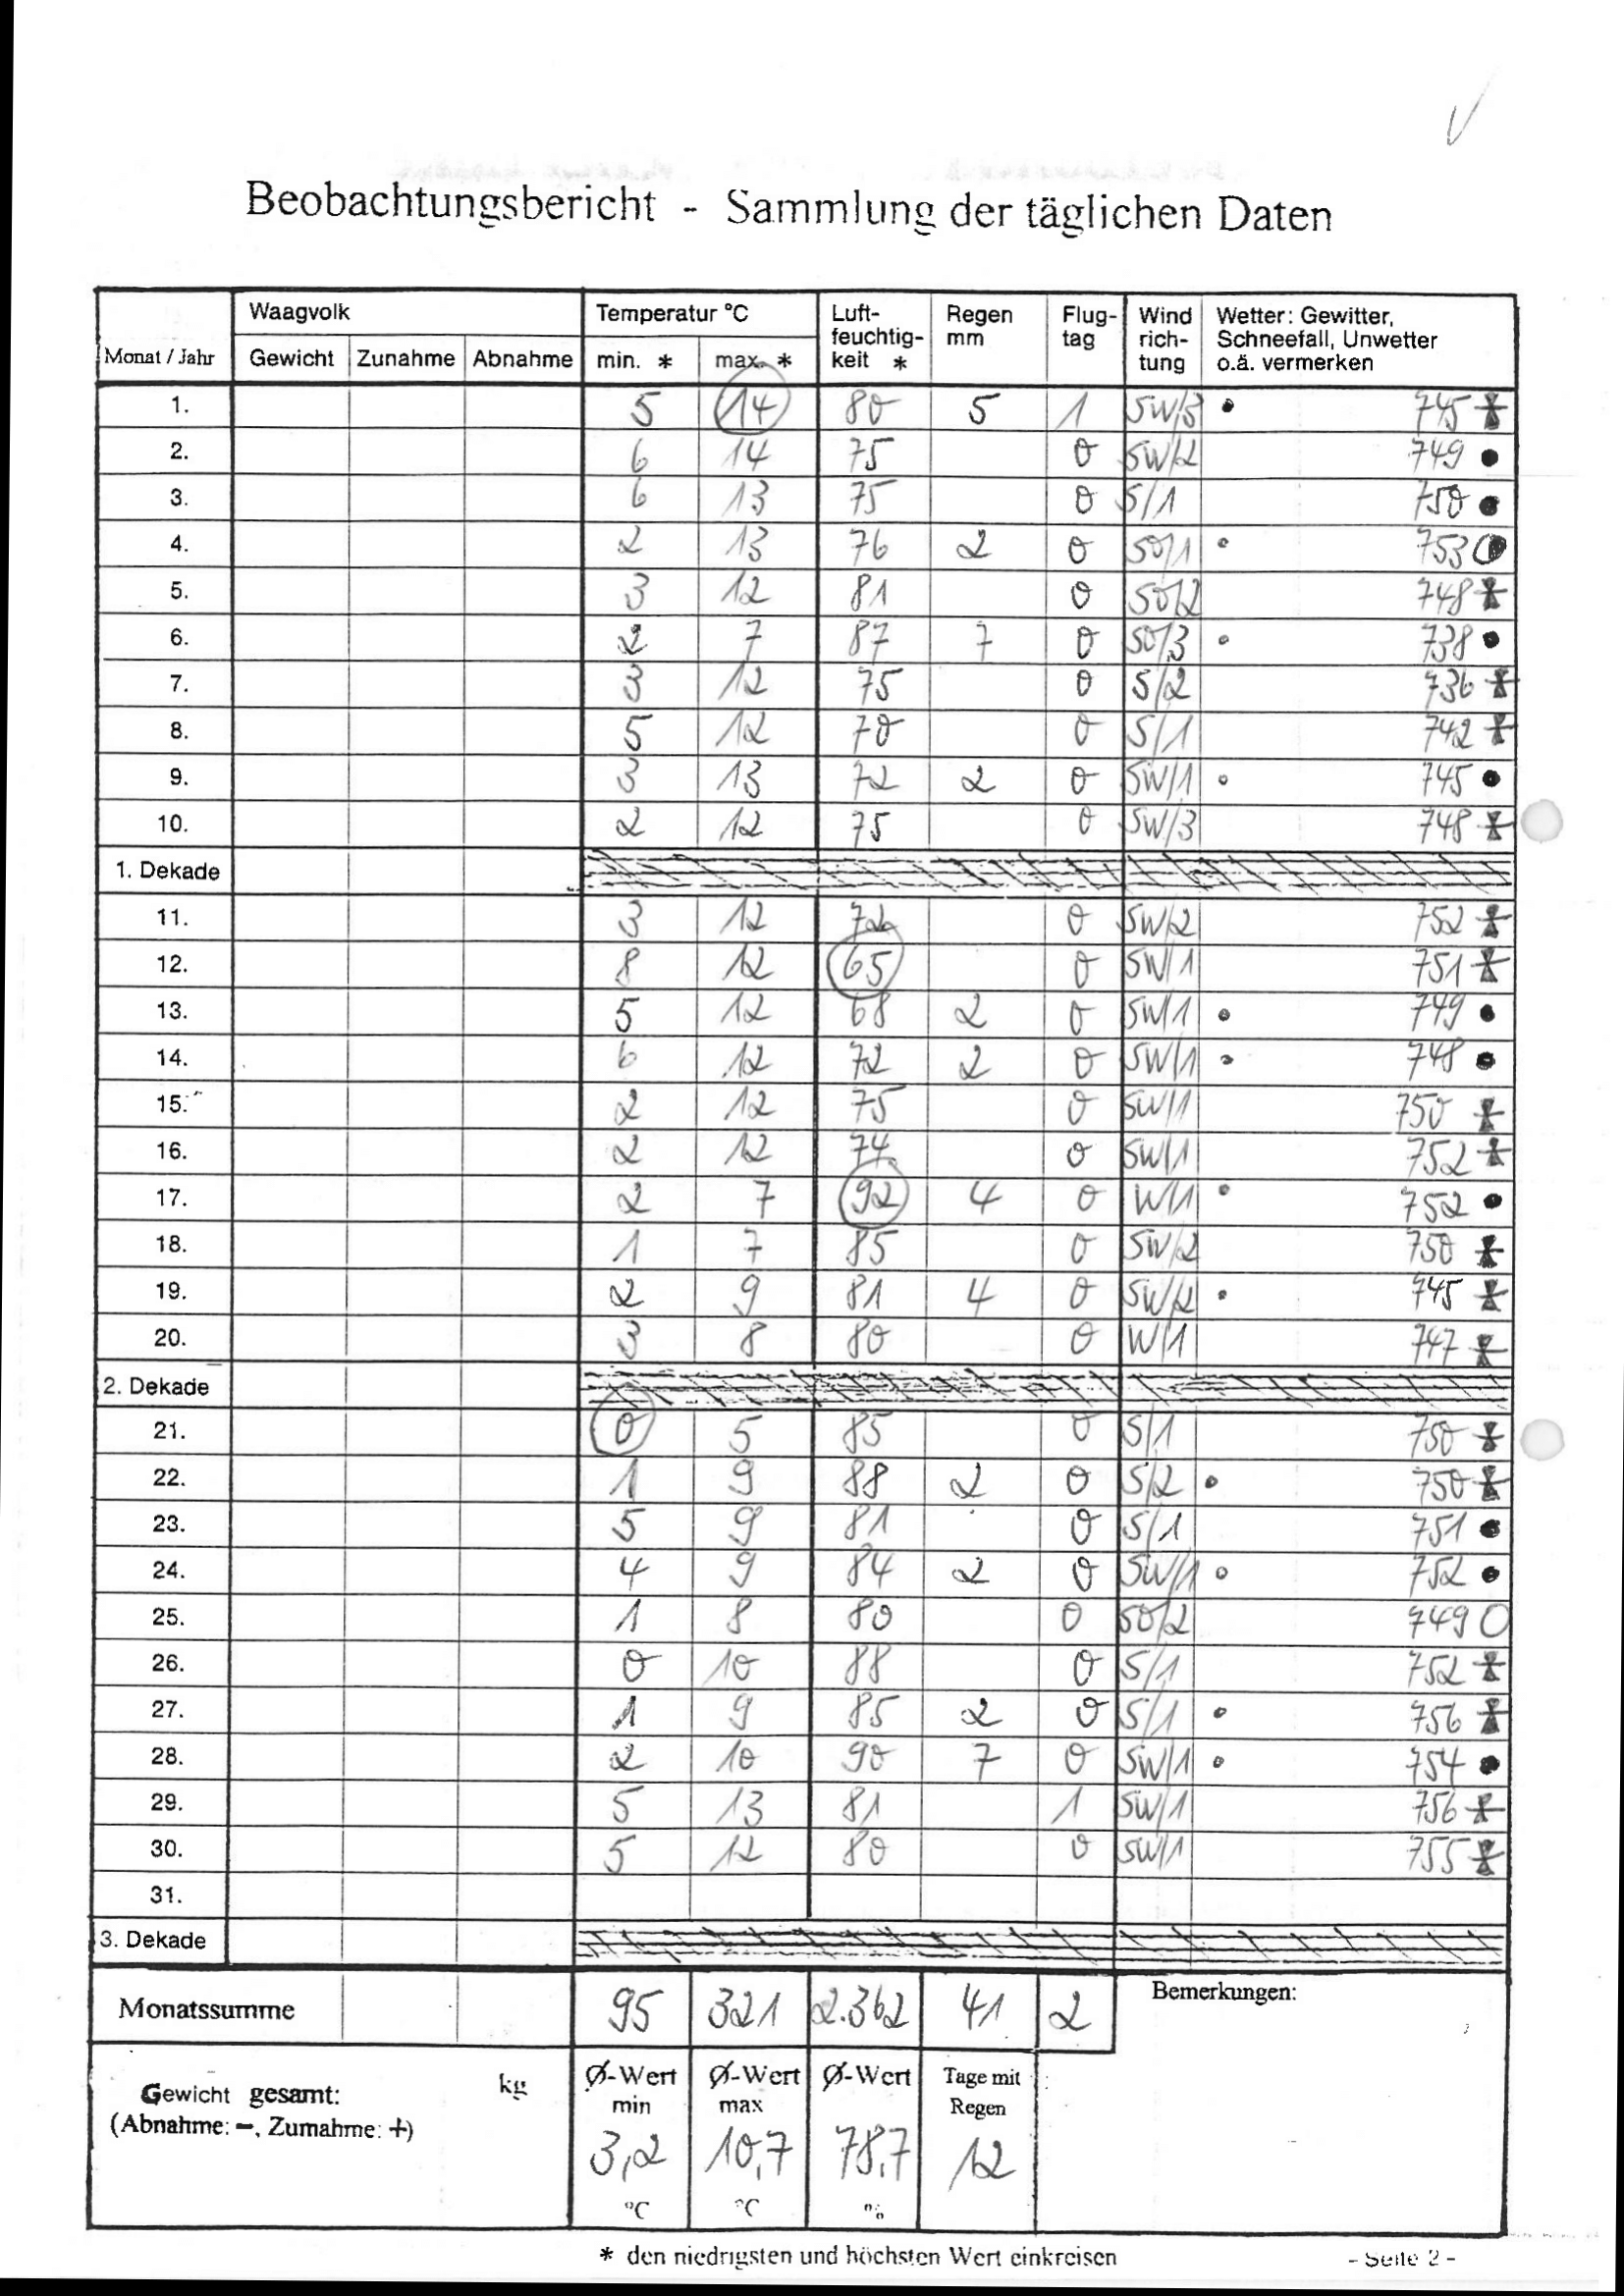 Beobachtungsbericht - Sammlung der täglichen Daten
Monat / Jahr Waagvolk Temperatur °C Luft-feuchtig-keit * Regen mm Flug-tag Wind rich-tung Wetter: Gewitter, Schneefall, Unwetter o.ä. vermerken
Gewicht Zunahme Abnahme min. * max. *
1. 5 14 80 5 1 SW/3 745
2. 6 14 75 0 SW/2 749
3. 6 13 75 0 S/1 750
4. 2 13 76 2 0 SO/1 753
5. 3 12 81 0 SO/2 748
6. 2 7 87 7 0 SO/3 738
7. 3 12 75 0 S/2 736
8. 5 12 70 0 S/1 742
9. 3 13 72 2 0 SW/1 745
10. 2 12 75 0 SW/3 748
1. Dekade
11. 3 12 72 0 SW/2 752
12. 8 12 65 0 SW/1 751
13. 5 12 68 2 0 SW/1 749
14. 6 12 72 2 0 SW/1 748
15. 2 12 75 0 SW/1 750
16. 2 12 74 0 SW/1 752
17. 2 7 92 4 0 W/1 752
18. 1 7 85 0 SW/2 750
19. 2 9 81 4 0 SW/2 745
20. 3 8 80 0 W/1 747
2. Dekade
21. 0 5 85 0 S/1 750
22. 1 9 88 2 0 S/2 750
23. 5 9 81 0 S/1 751
24. 4 9 84 2 0 SW/1 752
25. 1 8 80 0 SO/2 749
26. 0 10 88 0 S/1 752
27. 1 9 85 2 0 S/1 756
28. 2 10 90 7 0 SW/1 754
29. 5 13 81 1 SW/1 756
30. 5 12 80 0 SW/1 755
31.
3. Dekade
Monatssumme 95 321 2.362 41 2 Bemerkungen:
Gewicht gesamt: kg Ø-Wert min Ø-Wert max Ø-Wert Tage mit Regen
(Abnahme: -, Zumahme: +)
3,2 10,7 78,7 12
°C °C %
* den niedrigsten und höchsten Wert einkreisen - Seite 2 -